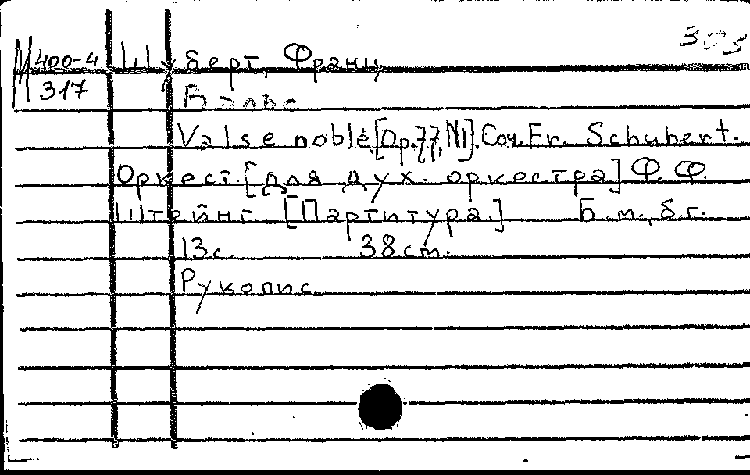 М 400-4 Шуберт, Франц
317 Вальс
Valse noble [Op. 77, N1]. Соч. Fr. Schubert.
Оркест. [для дух. оркестра] Ф. Ф.
Штейнг. [Партитура.] Б. м., б. г.
13 с. 38 см.
Рукопис